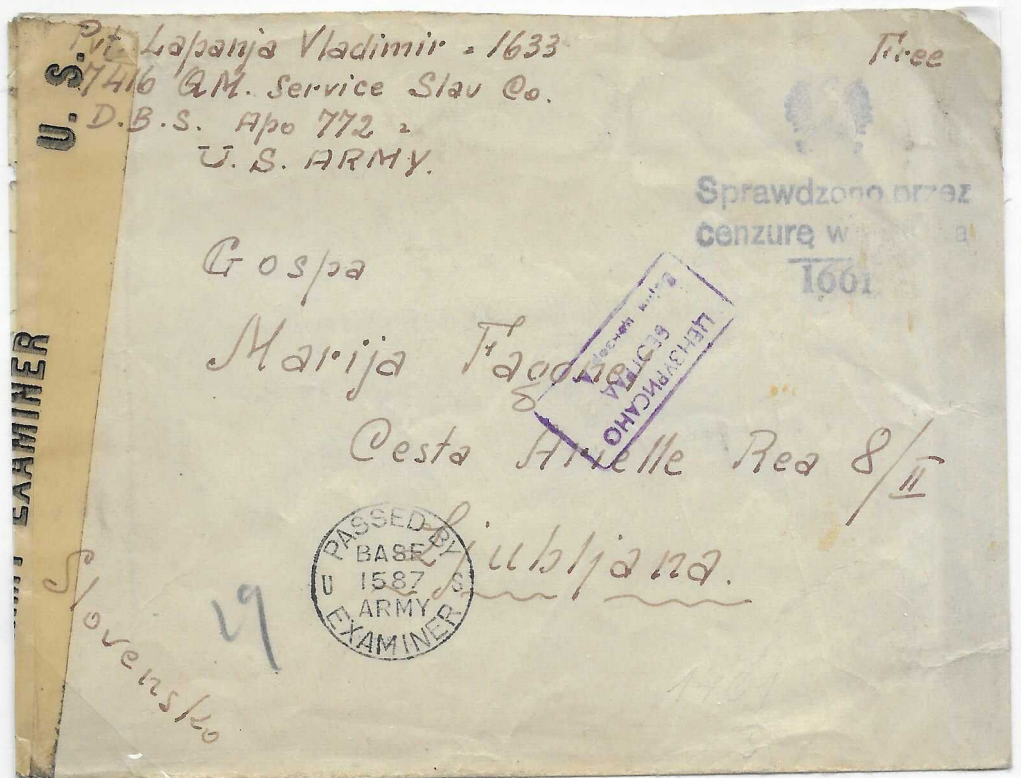 Pvt. Lapanja Vladimir - 1633
7416 QM. Service Slav Co.
D.B.S. Apo 772 -
U.S. ARMY.
Free
Sprawdzono przez
cenzurę w
1661
Gospa
Marija Fagone
Cesta Arielle Rea 8/II
Ljubljana.
ЦЕНЗУРИСАНО
БЕОГРАД
Војна цензура
PASSED BY
BASE
1587
U S
ARMY
EXAMINER
U. S.
EXAMINER
Slovensko
19